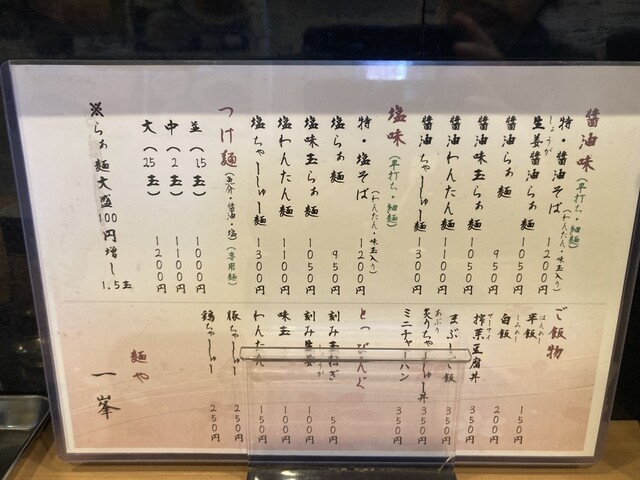 醤油味（平打ち・細麺）
特・醤油そば（わんたん・味玉入り）１２００円
生姜醤油らぁ麺 １０５０円
しょうが
醤油らぁ麺 ９５０円
醤油味玉らぁ麺 １０５０円
醤油わんたん麺 １１００円
醤油ちゃーしゅー麺 １３００円
塩味（平打ち・細麺）
特・塩そば（わんたん・味玉入り）１２００円
塩らぁ麺 ９５０円
塩味玉らぁ麺 １０５０円
塩わんたん麺 １１００円
塩ちゃーしゅー麺 １３００円
つけ麺（魚介・醤油・塩）（専用麺）
並（1.5玉）１０００円
中（2玉）１１００円
大（2.5玉）１２００円
※らぁ麺大盛100円増し 1.5玉
ご飯物
半飯 １５０円
はんめし
白飯 ２００円
しろめし
搾菜豆腐丼 ３５０円
ザーサイ
まぶし飯 ３５０円
炙りちゃーしゅー丼 ３５０円
あぶり
ミニチャーハン ３５０円
とっぴんぐ
刻み玉ねぎ ５０円
刻み生姜 １００円
味玉 １００円
わんたん １５０円
豚ちゃーしゅー ２５０円
鶏ちゃーしゅー ２５０円
麺や 一峯